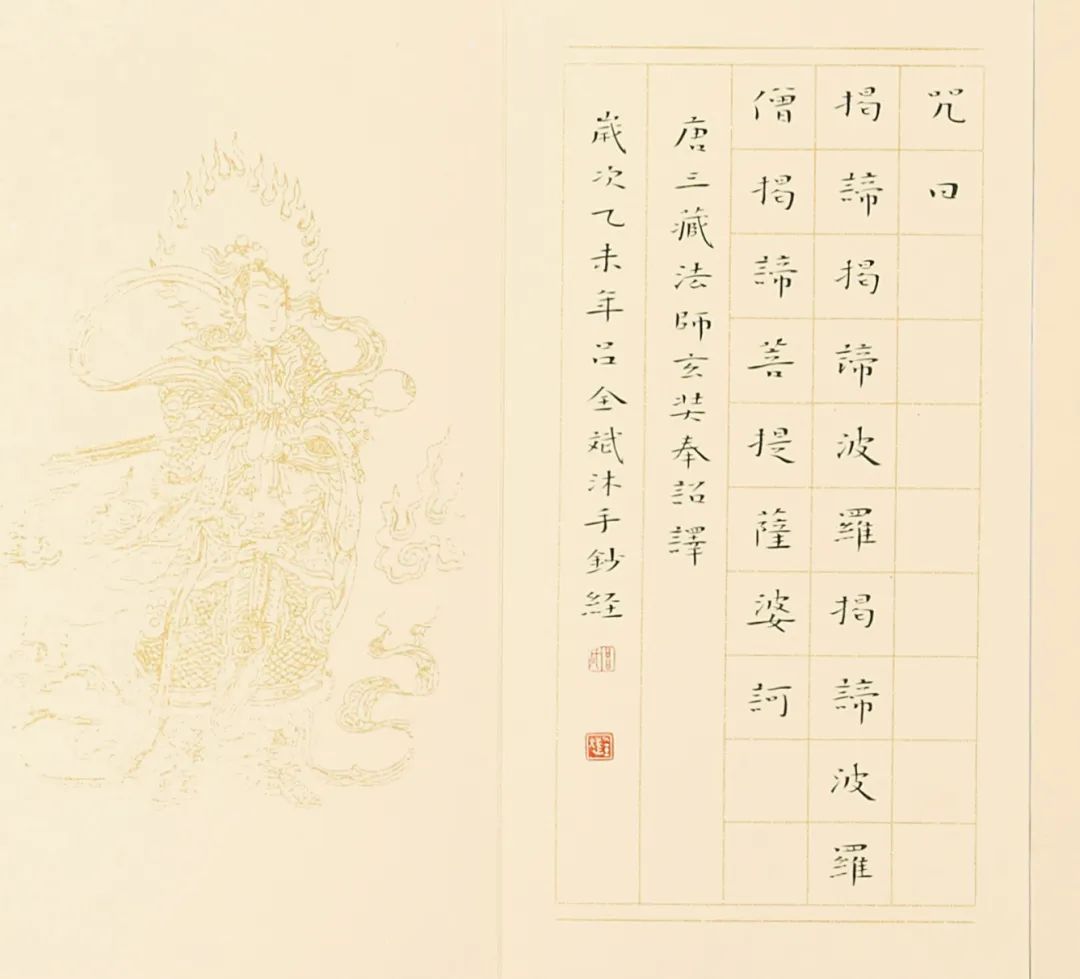 咒曰
揭諦揭諦波羅揭諦波羅
僧揭諦菩提薩婆訶
唐三藏法師玄奘奉詔譯
歲次乙未年吕全斌沐手鈔経